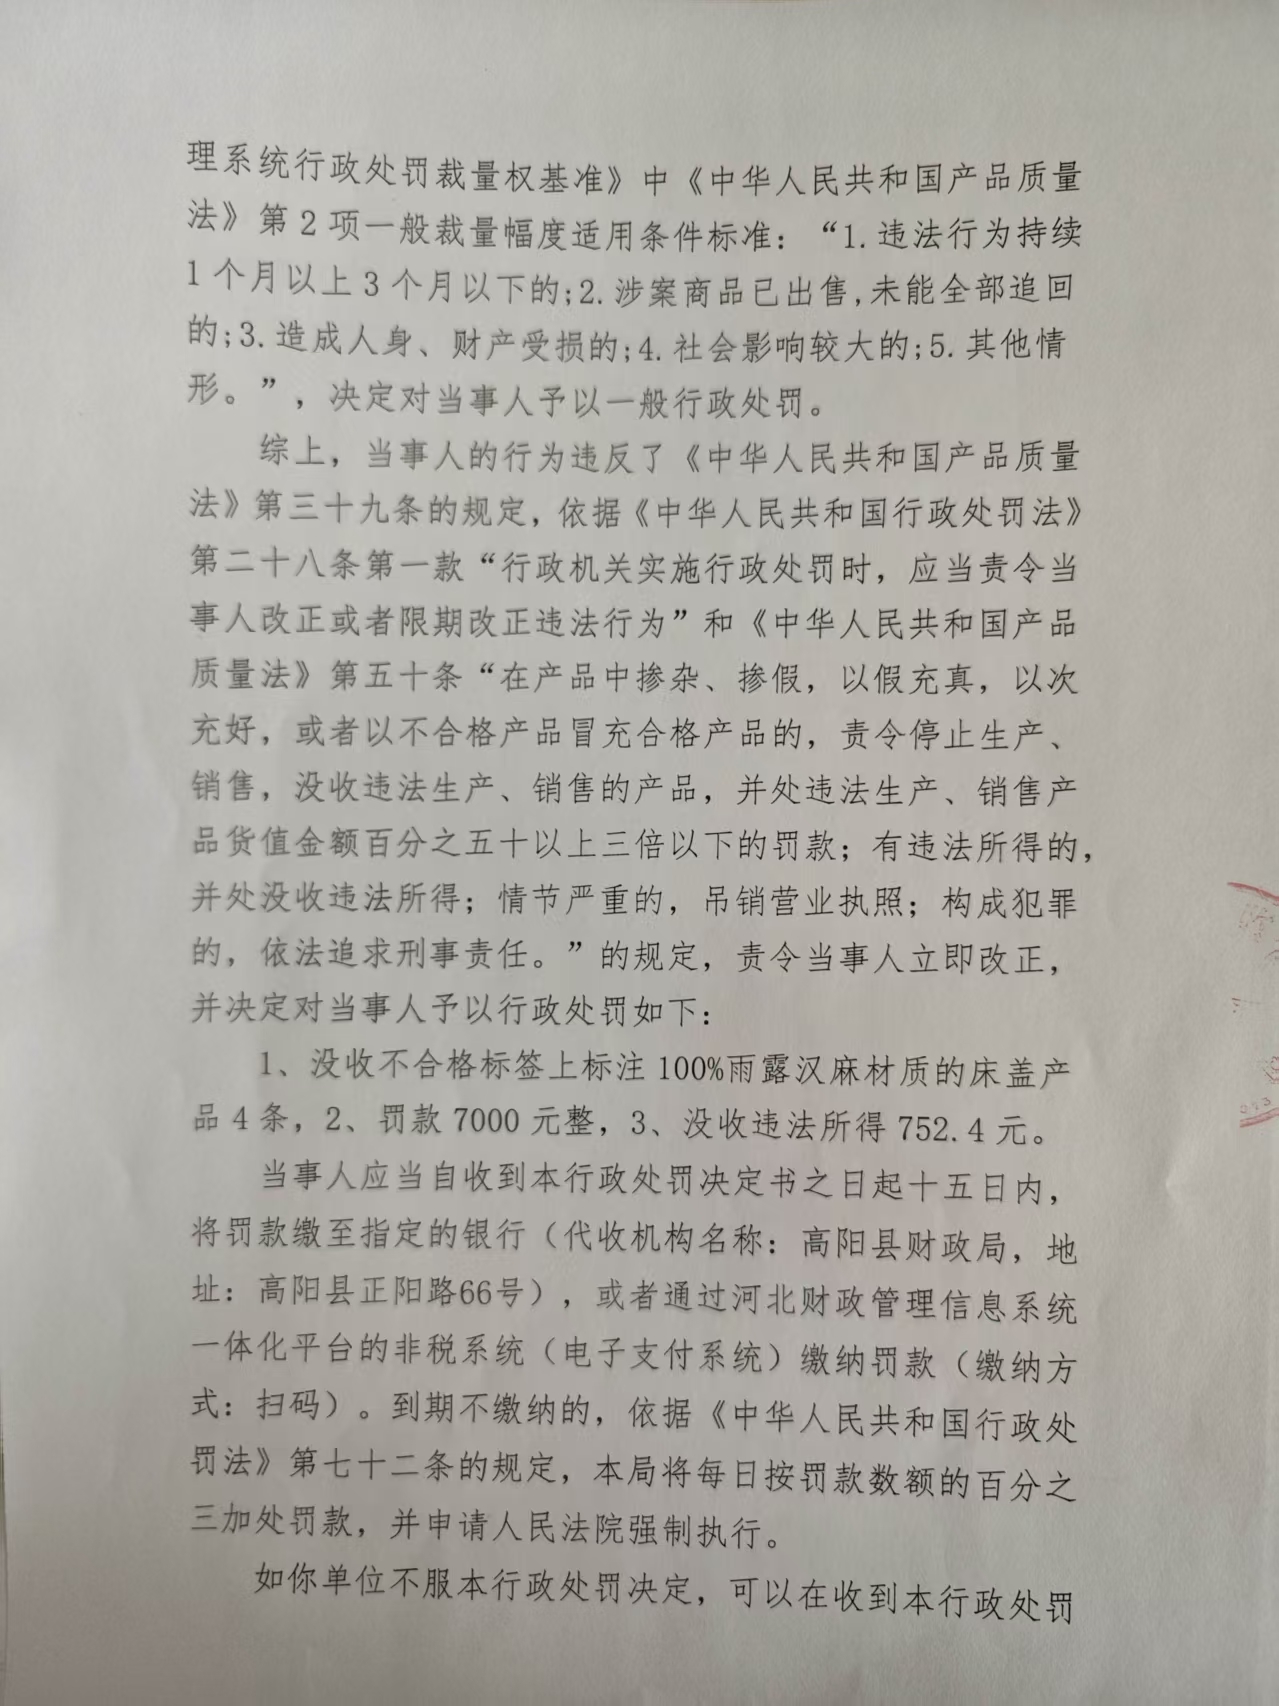 理系统行政处罚裁量权基准》中《中华人民共和国产品质量
法》第2项一般裁量幅度适用条件标准：“1.违法行为持续
1个月以上3个月以下的;2.涉案商品已出售,未能全部追回
的;3.造成人身、财产受损的;4.社会影响较大的;5.其他情
形。”，决定对当事人予以一般行政处罚。
综上，当事人的行为违反了《中华人民共和国产品质量
法》第三十九条的规定，依据《中华人民共和国行政处罚法》
第二十八条第一款“行政机关实施行政处罚时，应当责令当
事人改正或者限期改正违法行为”和《中华人民共和国产品
质量法》第五十条“在产品中掺杂、掺假，以假充真，以次
充好，或者以不合格产品冒充合格产品的，责令停止生产、
销售，没收违法生产、销售的产品，并处违法生产、销售产
品货值金额百分之五十以上三倍以下的罚款；有违法所得的，
并处没收违法所得；情节严重的，吊销营业执照；构成犯罪
的，依法追求刑事责任。”的规定，责令当事人立即改正，
并决定对当事人予以行政处罚如下：
1、没收不合格标签上标注100%雨露汉麻材质的床盖产
品4条，2、罚款7000元整，3、没收违法所得752.4元。
当事人应当自收到本行政处罚决定书之日起十五日内，
将罚款缴至指定的银行（代收机构名称：高阳县财政局，地
址：高阳县正阳路66号），或者通过河北财政管理信息系统
一体化平台的非税系统（电子支付系统）缴纳罚款（缴纳方
式：扫码）。到期不缴纳的，依据《中华人民共和国行政处
罚法》第七十二条的规定，本局将每日按罚款数额的百分之
三加处罚款，并申请人民法院强制执行。
如你单位不服本行政处罚决定，可以在收到本行政处罚